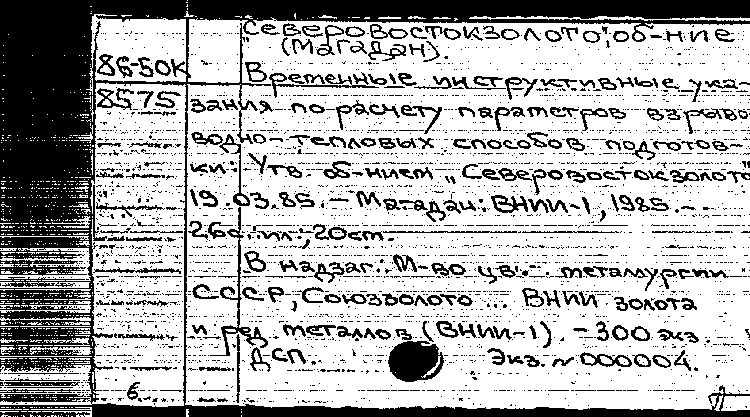 "Северовостокзолото", об-ние
(Магадан).
86-50К
Временные инструктивные ука-
8575 зания по расчету параметров взрыво
водно-тепловых способов подготов-
ки: Утв. об-нием „Северовостокзолото"
19.03.85. – Магадан: ВНИИ-1, 1985. –
26с.: ил.; 20см.
В надзаг.: М-во цв. металлургии
СССР, Союззолото ... ВНИИ золота
и ред. металлов (ВНИИ-1). – 300 экз.
ДСП. Экз. № 000004.
6